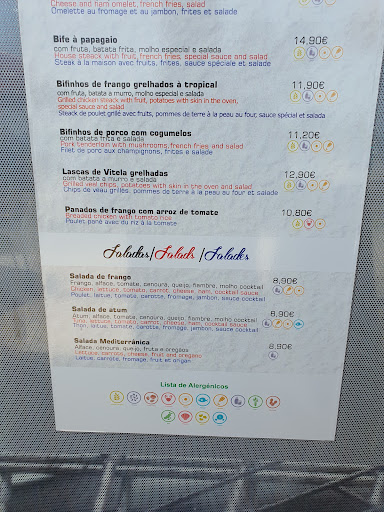 Cheese and ham omelet, french fries, salad
Omelette au fromage et au jambon, frites et salade
Bife à papagaio 14,90€
com fruta, batata frita, molho especial e salada
House steack with fruit, french fries, special sauce and salad
Steak a la maison avec fruits, frites, sauce spéciale et salade
Bifinhos de frango grelhados à tropical 11,90€
com fruta, batata a murro, molho especial e salada
Grilled chicken steack with fruit, potatoes with skin in the oven,
special sauce and salad
Steack de poulet grillé avec fruits, pommes de terre à la peau au four, sauce spécial et salade
Bifinhos de porco com cogumelos 11,20€
com batata frita e salada
Pork tenderloin with mushrooms, french fries and salad
Filet de porc aux champignons, frites e salade
Lascas de Vitela grelhadas 12,90€
com batata a murro e salada
Grilled veal chips, potatoes with skin in the oven and salad
Chips de veau grillés, pommes de terre à la peau au four et salade
Panados de frango com arroz de tomate 10,80€
Breaded chicken with tomato rice
Poulet pané avec du riz à la tomate
Saladas | Salads | Salades
Salada de frango 8,90€
Frango, alface, tomate, cenoura, queijo, fiambre, molho cocktail
Chicken, lettuce, tomato, carrot, cheese, ham, cocktail sauce
Poulet, laitue, tomate, carotte, fromage, jambon, sauce cocktail
Salada de atum 8,90€
Atum, alface, tomate, cenoura, queijo, fiambre, molho cocktail
Tuna, lettuce, tomato, carrot, cheese, ham, cocktail sauce
Thon, laitue, tomate, carotte, fromage, jambon, sauce cocktail
Salada Mediterrânica 8,90€
Alface, cenoura, queijo, fruta e oregãos
Lettuce, carrots, cheese, fruit and oregano
Laitue, carotte, fromage, fruit et origan
Lista de Alergénicos